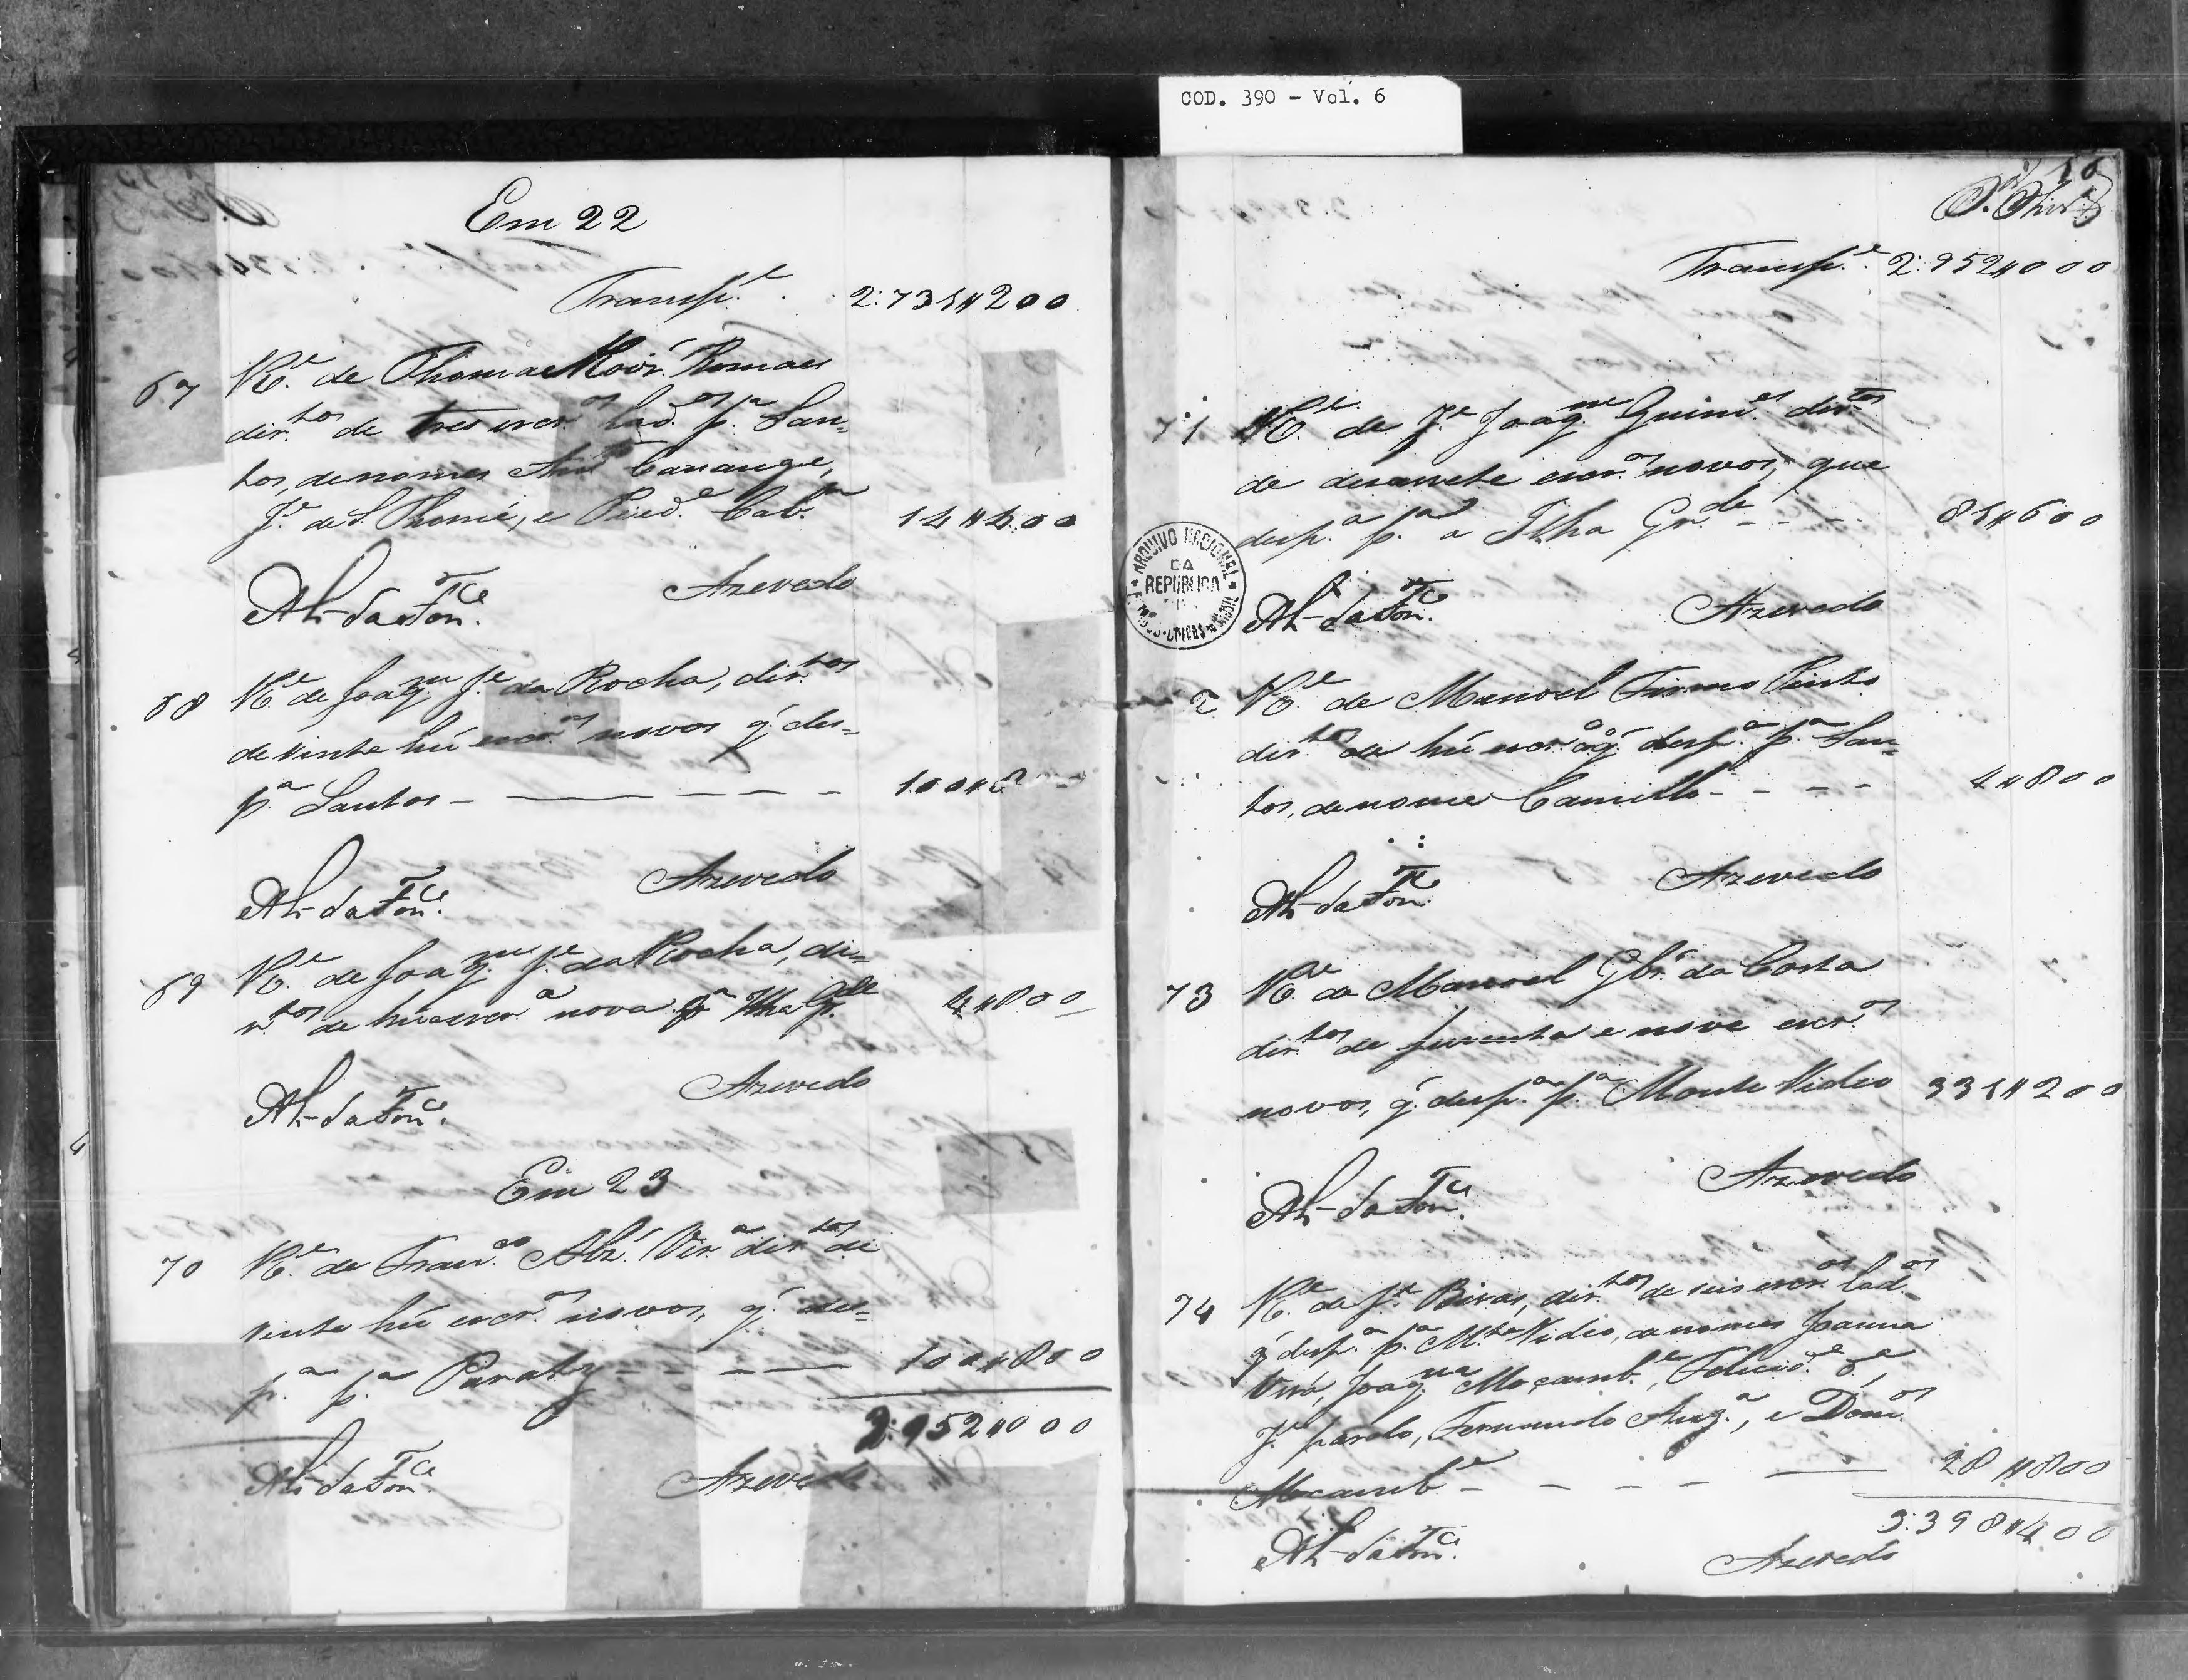 COD. 390 - Vol. 6
Em 22
Transp.e 2:731#200
67 R.e de Thomas Roiz Romaes
dir.tos de tres escr.os lad.os p.a San-
tos, de nomes Ant.o Canange,
J.e de S. Thomé, e Pied.e Cab.a 14#400
Azevedo
68 R.e de Joaq.m J.e da Rocha, dir.tos
de vinte hú escr.os novos q' des-
p.a Santos 100#8
Azevedo
69 R.e de Joaq.m J.e da Rocha, di-
r.tos de húa escr.a nova p.a Ilha G.de 4#800
Azevedo
Em 23
70 R.e de Fran.co Alz' Vir.a dir.tos de
vinte hú escr.os novos, q' des-
p.a p.a Paraty 100#800
2:952#000
Azevedo
Transp.e 2:952#000
71 R.e de J.e Joaq.m Guim.es dir.tos
de desassete escr.os novos, que
desp.a p.a a Ilha Gr.de 81#600
ARQUIVO NACIONAL
DA
REPÚBLICA
Azevedo
2 R.e de Manoel Firmo Pinto
dir.tos de hú escr.o q' desp.a p.a San-
tos, de nome Camillo 4#800
Azevedo
73 R.e de Manoel Glz' da Costa
dir.tos de secenta e nove escr.os
novos, q' desp.a p.a Monte Video 331#200
Azevedo
74 R.e de J.e Bivar, dir.tos de seis escr.os lad.os
q' desp.a p.a M.te Video, de nomes Joanna
Joaq.na Moçamb.e, Felicid.e d.e,
J.e pardo, Fernando Ang.a, e Dom.os
Mocamb.e 28#800
3:398#400
Azevedo